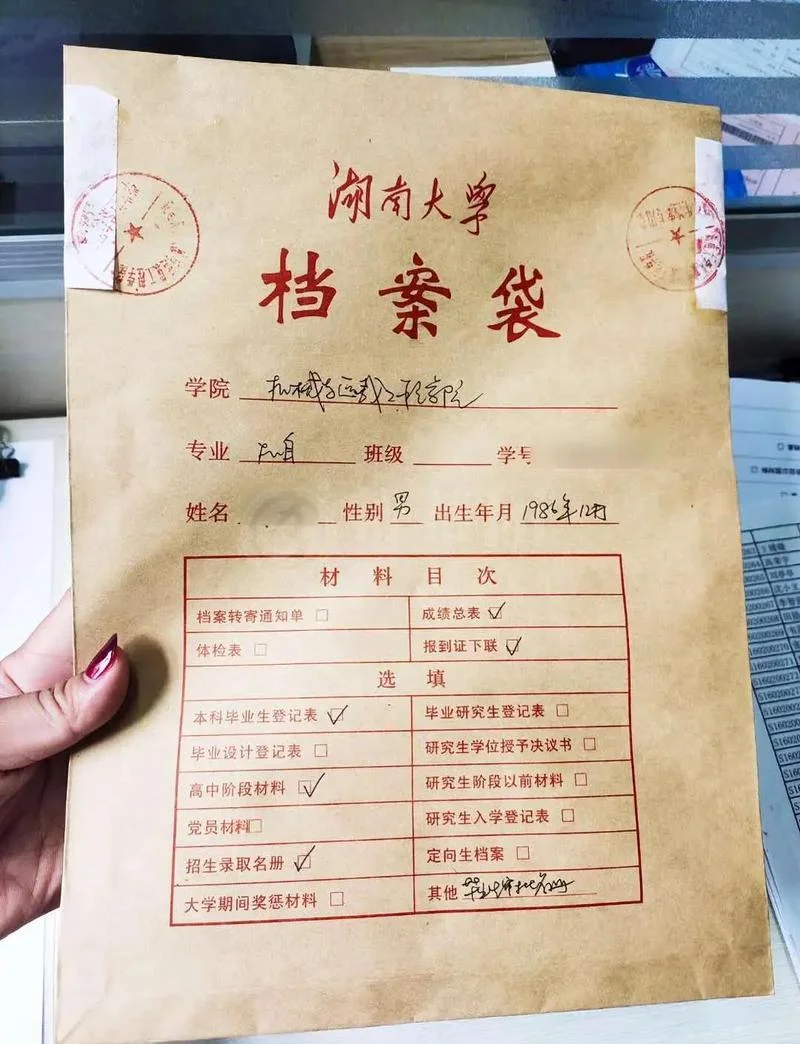 湖南大学
档案袋
学院 机械与运载工程学院
专业 机自 班级 学号
姓名 性别 男 出生年月 1986年12月
材料目次
档案转寄通知单 □ 成绩总表 ☑
体检表 □ 报到证下联 ☑
选填
本科毕业生登记表 ☑ 毕业研究生登记表 □
毕业设计登记表 □ 研究生学位授予决议书 □
高中阶段材料 ☑ 研究生阶段以前材料 □
党员材料 □ 研究生入学登记表 □
招生录取名册 ☑ 定向生档案 □
大学期间奖惩材料 □ 其他